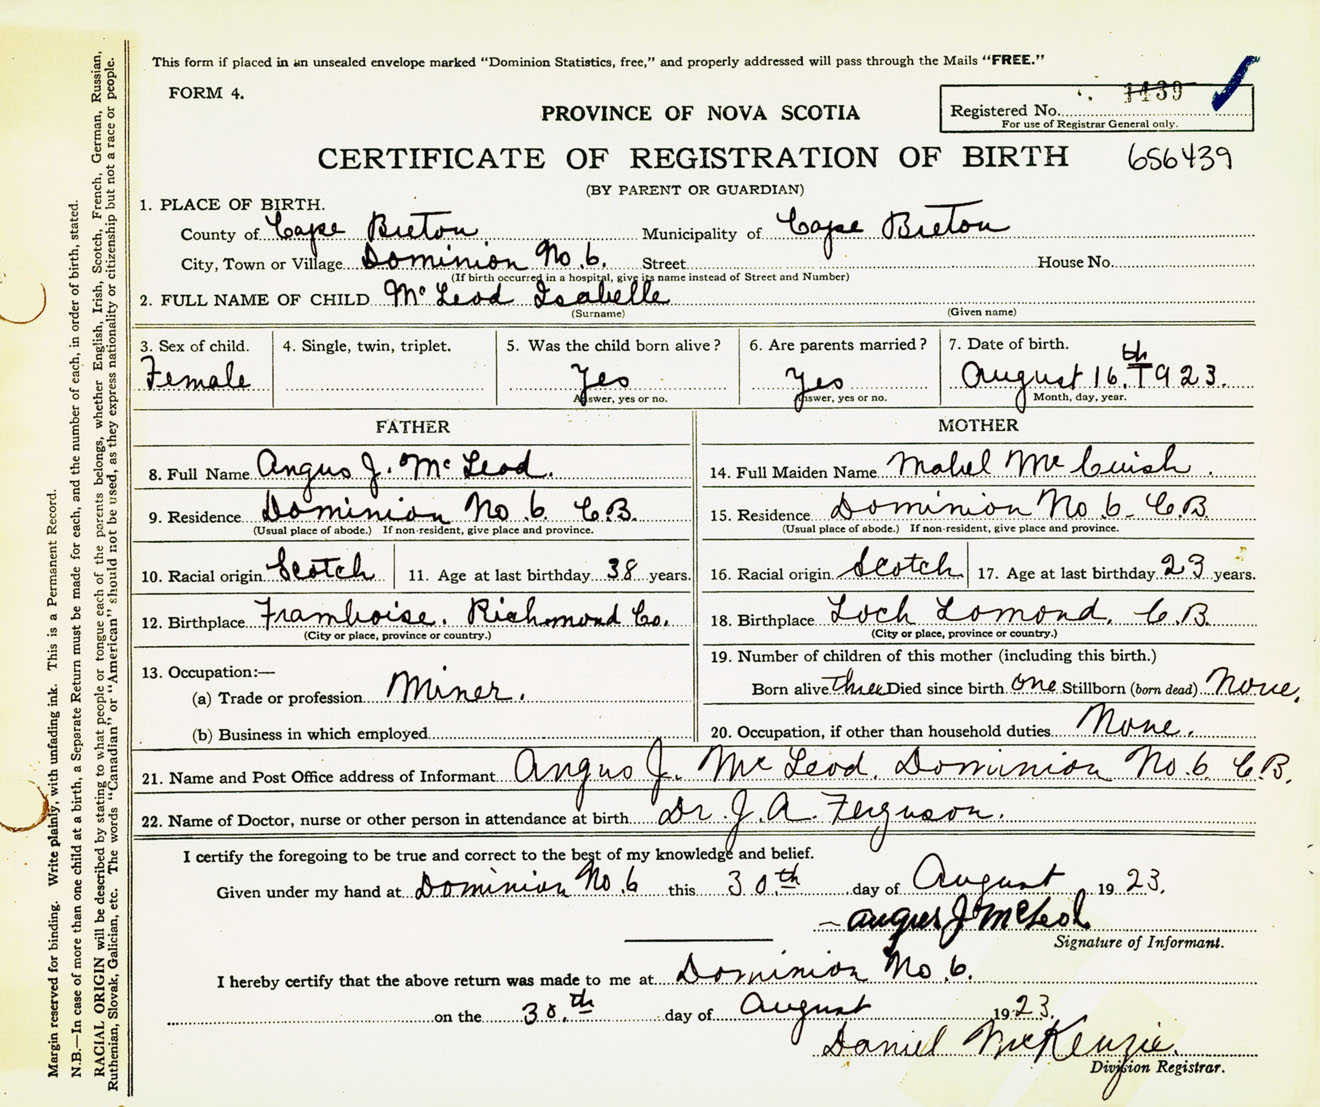 This form if placed in an unsealed envelope marked "Dominion Statistics, free," and properly addressed will pass through the Mails "FREE."
FORM 4.
PROVINCE OF NOVA SCOTIA
Registered No. 1439
For use of Registrar General only.
CERTIFICATE OF REGISTRATION OF BIRTH 656439
(BY PARENT OR GUARDIAN)
1. PLACE OF BIRTH.
County of Cape Breton Municipality of Cape Breton
City, Town or Village Dominion No. 6. Street House No.
(If birth occurred in a hospital, give its name instead of Street and Number)
2. FULL NAME OF CHILD Mc Leod Isabelle
(Surname) (Given name)
3. Sex of child. 4. Single, twin, triplet. 5. Was the child born alive? 6. Are parents married? 7. Date of birth.
Female Yes Yes August 16th. 1923.
Answer, yes or no. Answer, yes or no. Month, day, year.
FATHER MOTHER
8. Full Name Angus J. Mc Leod. 14. Full Maiden Name Mabel Mc Cuish.
9. Residence Dominion No 6 C.B. 15. Residence Dominion No 6 - C.B.
(Usual place of abode.) If non-resident, give place and province. (Usual place of abode.) If non-resident, give place and province.
10. Racial origin Scotch 11. Age at last birthday 38 years. 16. Racial origin Scotch 17. Age at last birthday 23 years.
12. Birthplace Framboise. Richmond Co. 18. Birthplace Loch Lomond, C.B.
(City or place, province or country.) (City or place, province or country.)
13. Occupation:— 19. Number of children of this mother (including this birth.)
(a) Trade or profession Miner. Born alive three Died since birth one Stillborn (born dead) None.
(b) Business in which employed 20. Occupation, if other than household duties None.
21. Name and Post Office address of Informant Angus J. Mc Leod. Dominion No. 6 C.B.
22. Name of Doctor, nurse or other person in attendance at birth Dr. J. A. Ferguson.
I certify the foregoing to be true and correct to the best of my knowledge and belief.
Given under my hand at Dominion No. 6 this 30th day of August 1923.
Angus J McLeod
Signature of Informant.
I hereby certify that the above return was made to me at Dominion No 6.
on the 30.th day of August 1923.
Daniel McKenzie.
Division Registrar.
Margin reserved for binding. Write plainly, with unfading ink. This is a Permanent Record.
N.B.—In case of more than one child at a birth, a Separate Return must be made for each, and the number of each, in order of birth, stated.
RACIAL ORIGIN will be described by stating to what people or tongue each of the parents belongs, whether English, Irish, Scotch, French, German, Russian,
Ruthenian, Slovak, Galician, etc. The words "Canadian" or "American" should not be used, as they express nationality or citizenship but not a race or people.